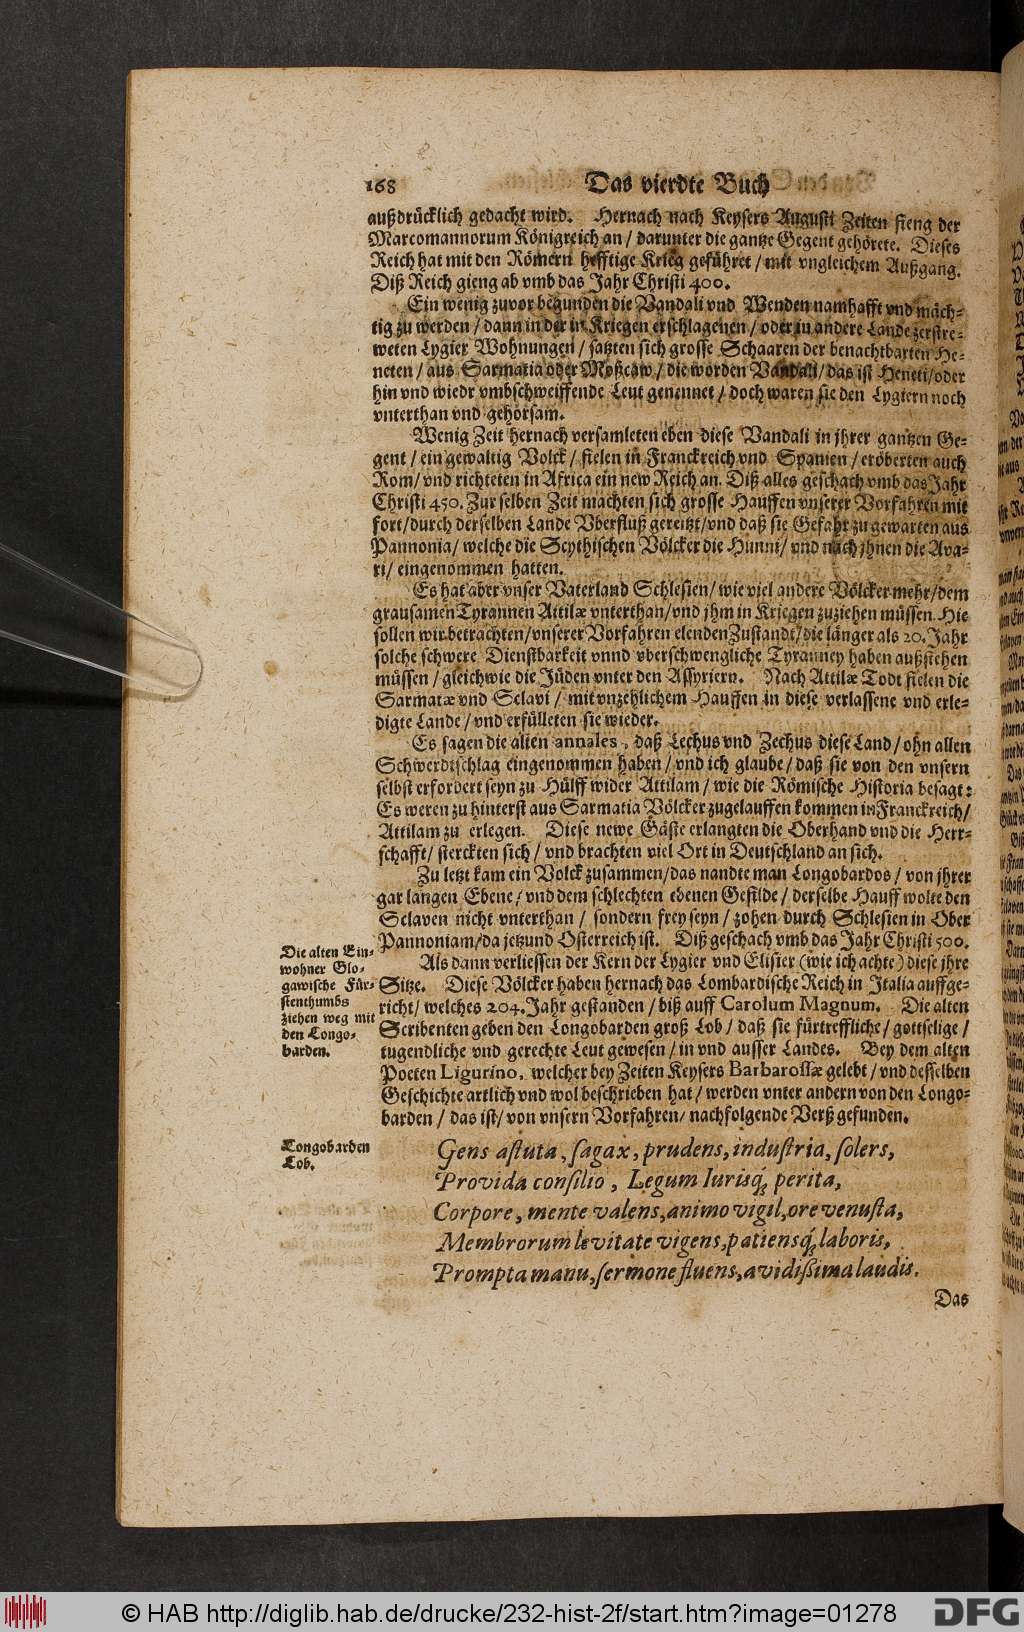 168 Das vierdte Buch
außdrücklich gedacht wird. Hernach nach Keysers Augusti Zeiten fieng der
Marcomannorum Königreich an / darunter die gantze Gegent gehörete. Dieses
Reich hat mit den Römern hefftige Krieg geführet / mit vngleichem Außgang.
Diß Reich gieng ab vmb das Jahr Christi 400.
Ein wenig zuvor begunden die Vandali vnd Wenden namhafft vnd mäch-
tig zu werden / dann in der in Kriegen erschlagenen / oder in andere Lande zerstre-
weten Lygier Wohnungen / satzten sich grosse Schaaren der benachtbarten He-
neten / aus Sarmatia oder Moßcaw / die worden Vandali / das ist Heneti / oder
hin vnd wiedr vmbschweiffende Leut genennet / doch waren sie den Lygiern noch
vnterthan vnd gehorsam.
Wenig Zeit hernach versamleten eben diese Vandali in jhrer gantzen Ge-
gent / ein gewaltig Volck / fielen in Franckreich vnd Spanien / eröberten auch
Rom / vnd richteten in Africa ein new Reich an. Diß alles geschach vmb das Jahr
Christi 450. Zur selben Zeit machten sich grosse Hauffen vnserer Vorfahren mit
fort / durch derselben Lande Vberfluß gereitzt / vnd daß sie Gefahr zu gewarten aus
Pannonia / welche die Scythischen Völcker die Hunni / vnd nach jhnen die Ava-
ri / eingenommen hatten.
Es hat aber vnser Vaterland Schlesien / wie viel andere Völcker mehr / dem
grausamen Tyrannen Attilæ vnterthan / vnd jhm in Kriegen zuziehen müssen. Hie
sollen wir betrachten / vnserer Vorfahren elenden Zustandt / die länger als 20. Jahr
solche schwere Dienstbarkeit vnnd vberschwengliche Tyranney haben außstehen
müssen / gleichwie die Jüden vnter den Assyriern. Nach Attilæ Todt fielen die
Sarmatæ vnd Sclavi / mit vnzehlichem Hauffen in diese verlassene vnd erle-
digte Lande / vnd erfülleten sie wieder.
Es sagen die alten annales, daß Lechus vnd Zechus diese Land / ohn allen
Schwerdtschlag eingenommen haben / vnd ich glaube / daß sie von den vnsern
selbst erfordert seyn zu Hülff wider Attilam / wie die Römische Historia besagt:
Es weren zu hinterst aus Sarmatia Völcker zugelauffen kommen in Franckreich /
Attilam zu erlegen. Diese newe Gäste erlangten die Oberhand vnd die Herr-
schafft / sterckten sich / vnd brachten viel Ort in Deutschland an sich.
Zu letzt kam ein Volck zusammen / das nandte man Longobardos / von jhrer
gar langen Ebene / vnd dem schlechten ebenen Gefilde / derselbe Hauff wolte den
Sclaven nicht vnterthan / sondern frey seyn / zohen durch Schlesien in Ober
Pannoniam / da jetzund Osterreich ist. Diß geschach vmb das Jahr Christi 500.
Die alten Ein-
wohner Glo-
gawische Für-
stenthumbs
ziehen weg mit
den Longo-
barden.
Als dann verliessen der Kern der Lygier vnd Elisier (wie ich achte) diese jhre
Sitze. Diese Völcker haben hernach das Lombardische Reich in Italia auffge-
richt / welches 204. Jahr gestanden / biß auff Carolum Magnum. Die alten
Scribenten geben den Longobarden groß Lob / daß sie fürtreffliche / gottselige /
tugendliche vnd gerechte Leut gewesen / in vnd ausser Landes. Bey dem alten
Poeten Ligurino, welcher bey Zeiten Keysers Barbarossæ gelebt / vnd desselben
Geschichte artlich vnd wol beschrieben hat / werden vnter andern von den Longo-
barden / das ist / von vnsern Vorfahren / nachfolgende Verß gefunden.
Longobarden
Lob.
Gens astuta, sagax, prudens, industria, solers,
Provida consilio, Legum Iurisq́; perita,
Corpore, mente valens, animo vigil, ore venusta,
Membrorum levitate vigens, patiensq́; laboris,
Prompta manu, sermone fluens, avidissima laudis.
Das
© HAB http://diglib.hab.de/drucke/232-hist-2f/start.htm?image=01278
DFG